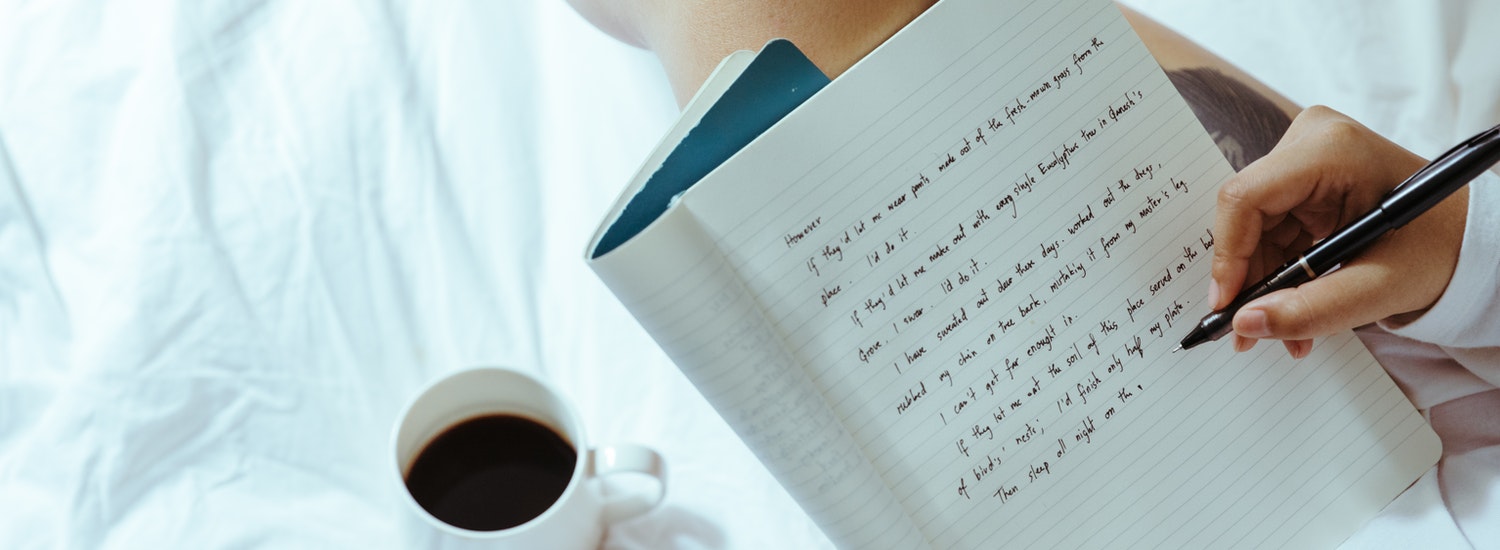 However
If they'd let me wear pants made out of the fresh-mown grass from the
place. I'd do it.
If they'd let me make out with every single Eucalyptus tree in Ganesh's
Grove, I swear. I'd do it.
I have sweated out dew these days. worked out the dregs,
rubbed my chin on tree bark, mistaking it from my master's leg
I can't get far enough in.
If they let me eat the soil of this place served on the bed
of birds' nests; I'd finish only half my plate.
Then sleep all night on the